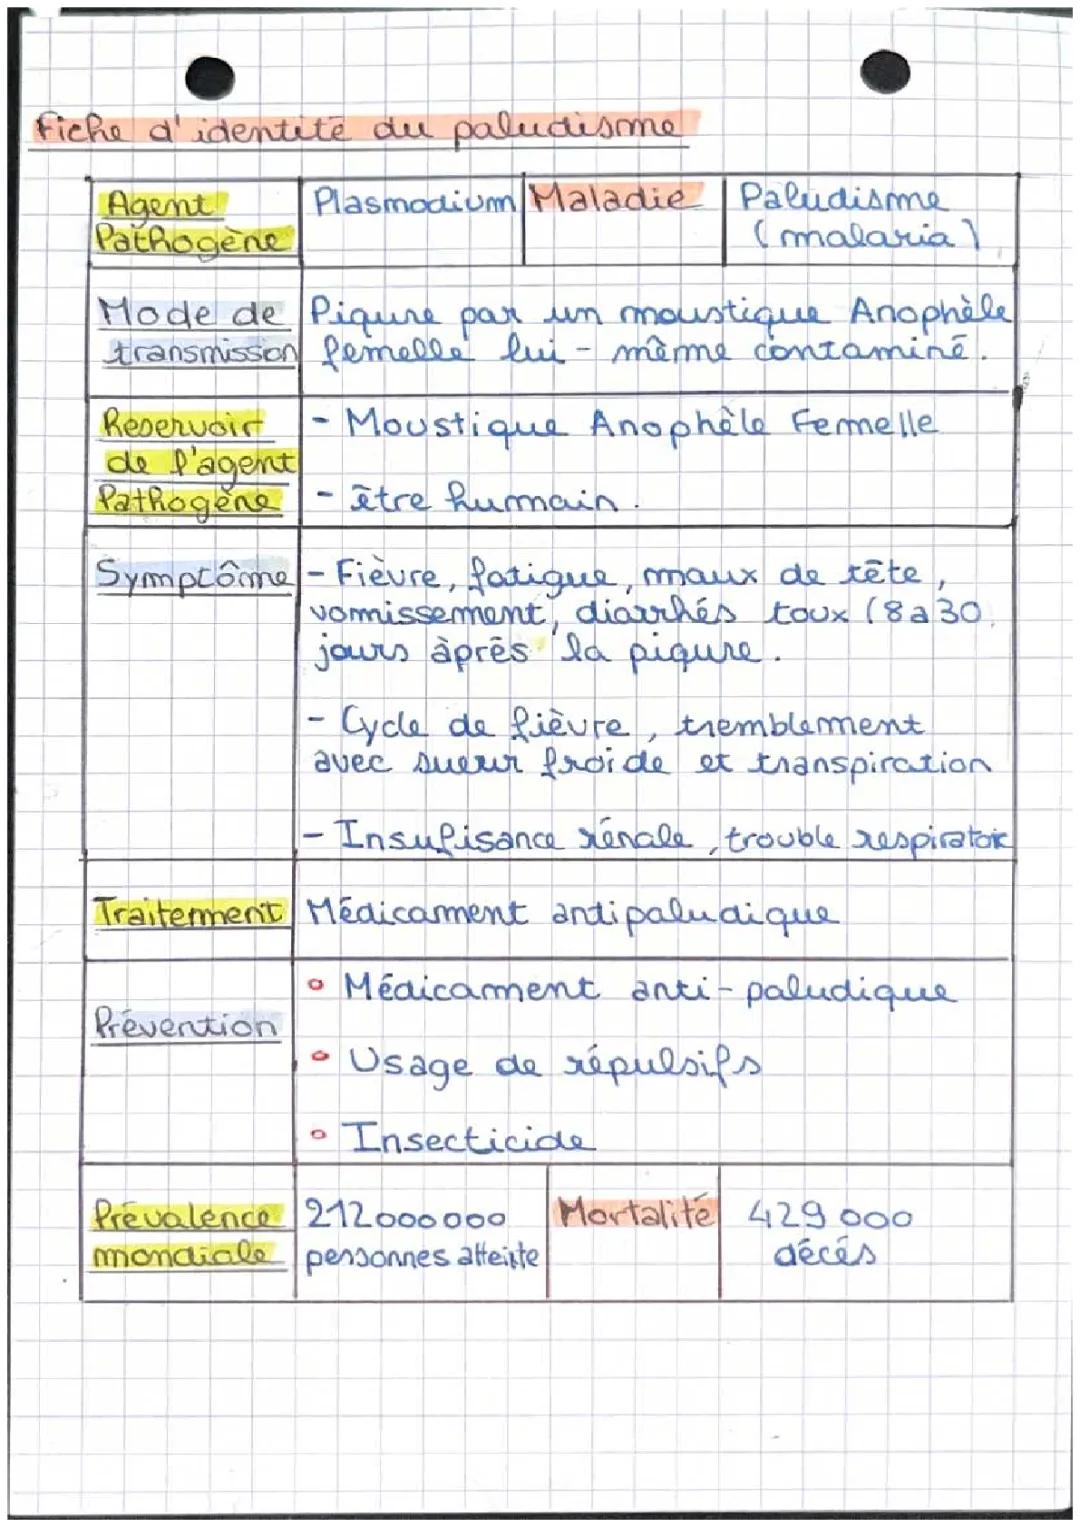 Fiche d'identité du paludisme
Agent Pathogène
Plasmodium
Maladie
Paludisme
(malaria)
Mode de transmission
Piqure par un moustique Anophèle
femelle lui-même contaminé.
Reservoir de l'agent Pathogène
- Moustique Anophèle Femelle
- être humain.
Symptôme
- Fièvre, fatigue, maux de tête,
vomissement, diarrhés toux (8 à 30
jours àprês la piqure.
- Cycle de fièvre, tremblement
avec sueur froide et transpiration
- Insufisance rénale, trouble respiratoir
Traitement
Médicament antipaludique
Prévention
Médicament anti-paludique
Usage de répulsifs
Insecticide
Prévalence mondiale
212000000
personnes atteinte
Mortalité
429 000
décés